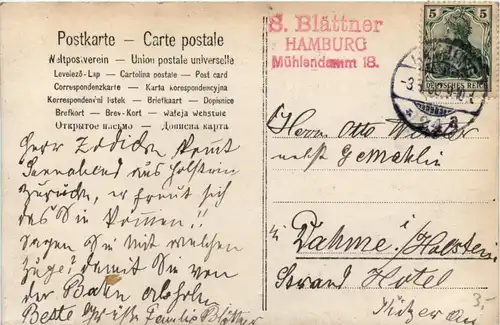 Postkarte – Carte postale
Weltpostverein – Union postale universelle
Levelező-Lap – Cartolina postale – Post card
Correspondenzkarte – Karta korespondencyjna
Korrespondenční lístek – Briefkaart – Dopisnice
Brefkort – Brev-Kort
Открытое письмо – Дописна карта
S. Blättner
HAMBURG
Mühlendamm 18.
5 5
DEUTSCHES REICH
Herr Zodick kommt
Sonnabend aus Holstein
zurück, er freut sich
das Sie kommen!!
Sagen Sie mit welchen
Zuge? damit Sie von
der Bahn abholen
Beste Grüße Familie Blättner
Herrn Otto
nebst Gemahlin
Dahme i/Holstein
Strand Hotel
3,-